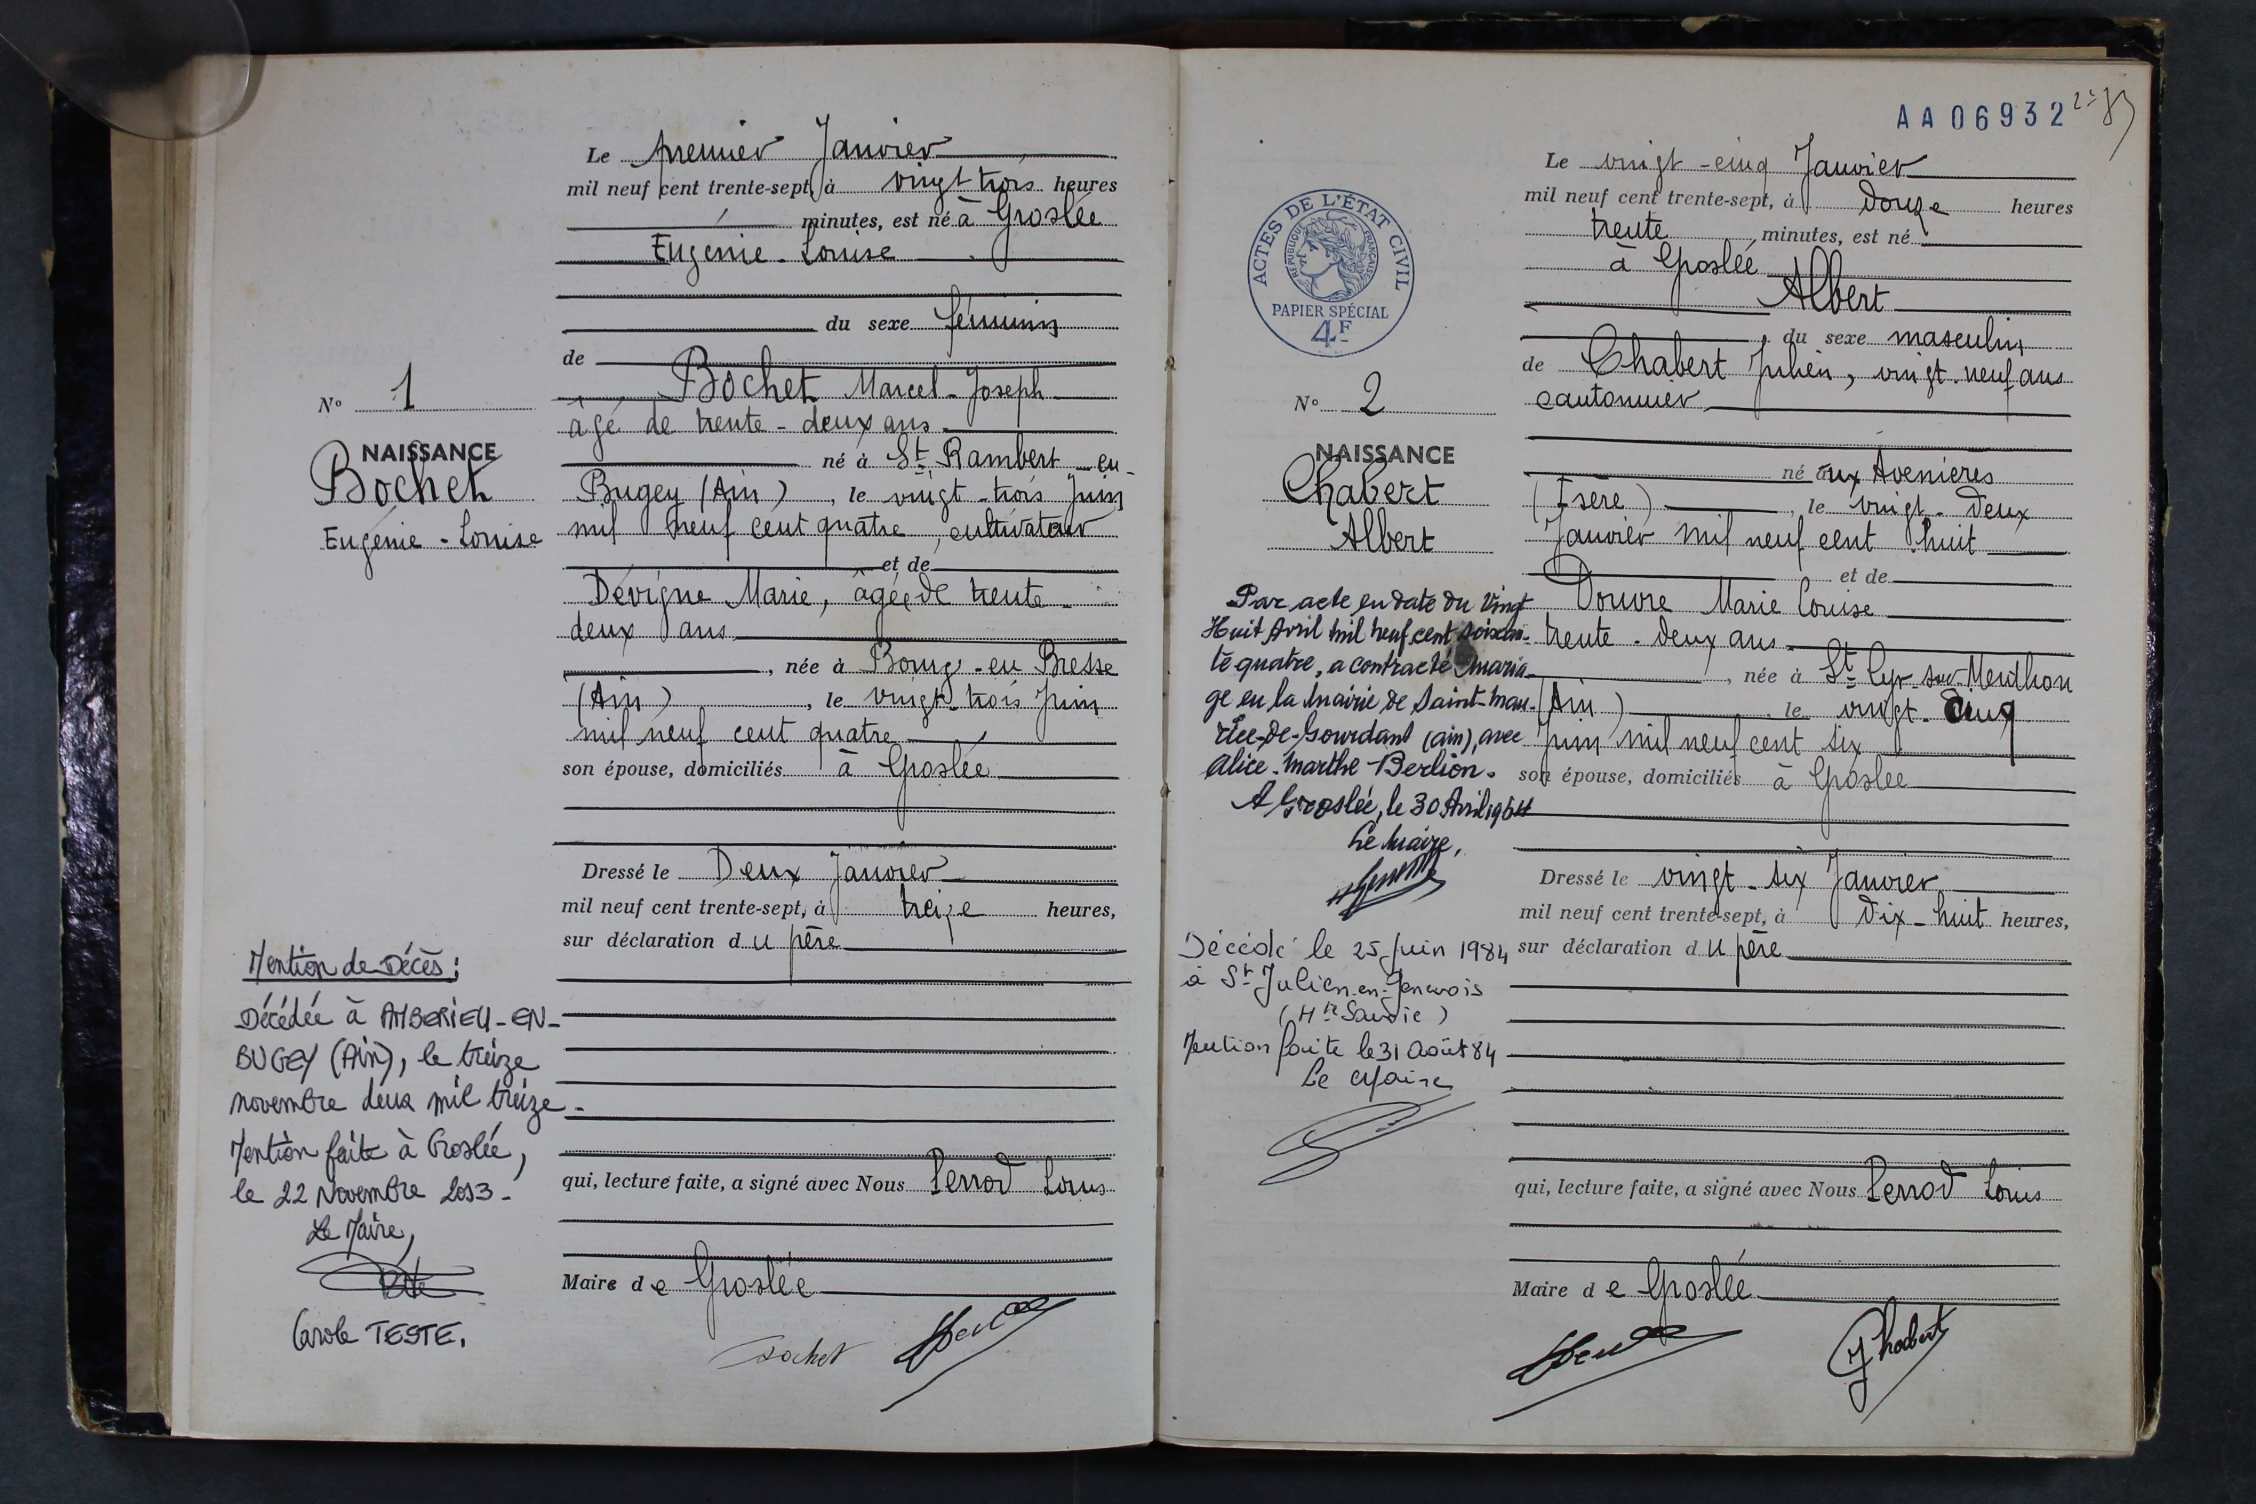 Le premier Janvier
mil neuf cent trente-sept, à vingt trois heures
minutes, est né à Groslée
Eugénie - Louise
du sexe féminin
de
Bochet Marcel - Joseph
âgé de trente - deux ans
né à St Rambert - en -
Bugey (Ain), le vingt - trois Juin
mil neuf cent quatre, cultivateur
et de
Dévigne Marie, âgée de trente -
deux ans
, née à Bourg - en Bresse
(Ain), le vingt - trois Juin
mil neuf cent quatre
son épouse, domiciliés à Groslée
Dressé le Deux Janvier
mil neuf cent trente-sept, à treize heures,
sur déclaration du père
qui, lecture faite, a signé avec Nous Perrod Louis
Maire de Groslée
Bochet
No 1
NAISSANCE
Bochet
Eugénie - Louise
Mention de Décès :
Décédée à AMBERIEU-EN-
BUGEY (Ain), le treize
novembre deux mil treize -
Mention faite à Groslée,
le 22 Novembre 2013 -
Le Maire,
Carole TESTE.
AA 06932
ACTES DE L'ÉTAT CIVIL
RÉPUBLIQUE FRANÇAISE
PAPIER SPÉCIAL
4F
Le vingt - cinq Janvier
mil neuf cent trente-sept, à douze heures
trente minutes, est né
à Groslée
Albert
du sexe masculin
de Chabert Julien, vingt - neuf ans
cantonnier
né aux Avenières
(Isère), le vingt - deux
Janvier mil neuf cent huit
et de
Douvre Marie Louise
trente - deux ans
, née à St Cyr - sur - Menthon
(Ain) le vingt - cinq
Juin mil neuf cent six
son épouse, domiciliés à Groslée
Dressé le vingt - six Janvier
mil neuf cent trente-sept, à dix - huit heures,
sur déclaration du père
qui, lecture faite, a signé avec Nous Perrod Louis
Maire de Groslée
JChabert
No 2
NAISSANCE
Chabert
Albert
Par acte en date du Vingt
Huit Avril mil neuf cent soixan-
te quatre, a contracté maria-
ge en la mairie de Saint-Mau-
rice-de-Gourdans (ain), avec
Alice - Marthe Berlion.
A Groslée, le 30 Avril 1964
Le Maire,
Décédé le 25 Juin 1984
à St Julien-en-Genevois
(Hte Savoie)
Mention faite le 31 Août 84
Le Maire